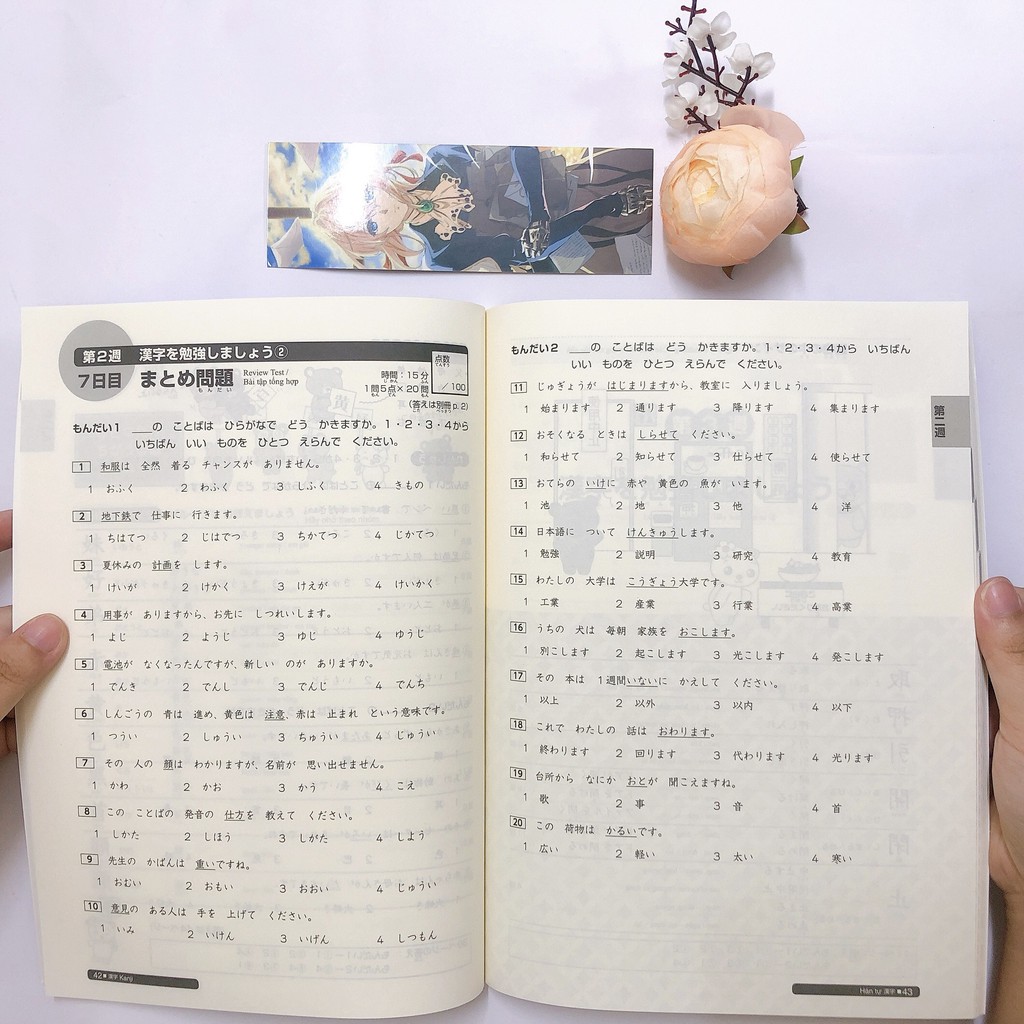 第2週 漢字を勉強しましょう②
7日目 まとめ問題
もんだい
Review Test /
Bài tập tổng hợp
時間:15分
じかん
1問5点×20問
もん てん もん
(答えは別冊 p. 2)
点数
てんすう
/100
もんだい1 ___の ことばは ひらがなで どう かきますか。1・2・3・4から
いちばん いい ものを ひとつ えらんで ください。
1 和服は 全然 着る チャンスが ありません。
1 おふく 2 わふく 3 しふく 4 きもの
2 地下鉄で 仕事に 行きます。
1 ちはてつ 2 じはでつ 3 ちかてつ 4 じかてつ
3 夏休みの 計画を します。
1 けいが 2 けかく 3 けえが 4 けいかく
4 用事が ありますから、お先に しつれいします。
1 よじ 2 ようじ 3 ゆじ 4 ゆうじ
5 電池が なくなったんですが、新しい のが ありますか。
1 でんき 2 でんし 3 でんじ 4 でんち
6 しんごうの 青は 進め、黄色は 注意、赤は 止まれ という意味です。
1 つうい 2 しゅうい 3 ちゅうい 4 じゅうい
7 その 人の 顔は わかりますが、名前が 思い出せません。
1 かわ 2 かお 3 かう 4 こえ
8 この ことばの 発音の 仕方を 教えて ください。
1 しかた 2 しほう 3 しがた 4 しよう
9 先生の かばんは 重いですね。
1 おむい 2 おもい 3 おおい 4 じゅうい
10 意見の ある人は 手を 上げて ください。
1 いみ 2 いけん 3 いげん 4 しつもん
42 ■ 漢字 Kanji
もんだい2 ___の ことばは どう かきますか。1・2・3・4から いちばん
いい ものを ひとつ えらんで ください。
11 じゅぎょうが はじまりますから、教室に 入りましょう。
1 始まります 2 通ります 3 降ります 4 集まります
12 おそくなる ときは しらせて ください。
1 和らせて 2 知らせて 3 仕らせて 4 使らせて
13 おてらの いけに 赤や 黄色の 魚が います。
1 池 2 地 3 他 4 洋
14 日本語に ついて けんきゅうします。
1 勉強 2 説明 3 研究 4 教育
15 わたしの 大学は こうぎょう大学です。
1 工業 2 産業 3 行業 4 高業
16 うちの 犬は 毎朝 家族を おこします。
1 別こします 2 起こします 3 光こします 4 発こします
17 その 本は 1週間いないに かえして ください。
1 以上 2 以外 3 以内 4 以下
18 これで わたしの 話は おわります。
1 終わります 2 回ります 3 代わります 4 光ります
19 台所から なにか おとが 聞こえますね。
1 歌 2 事 3 音 4 首
20 この 荷物は かるいです。
1 広い 2 軽い 3 太い 4 寒い
第二週
Hán tự 漢字 ■ 43